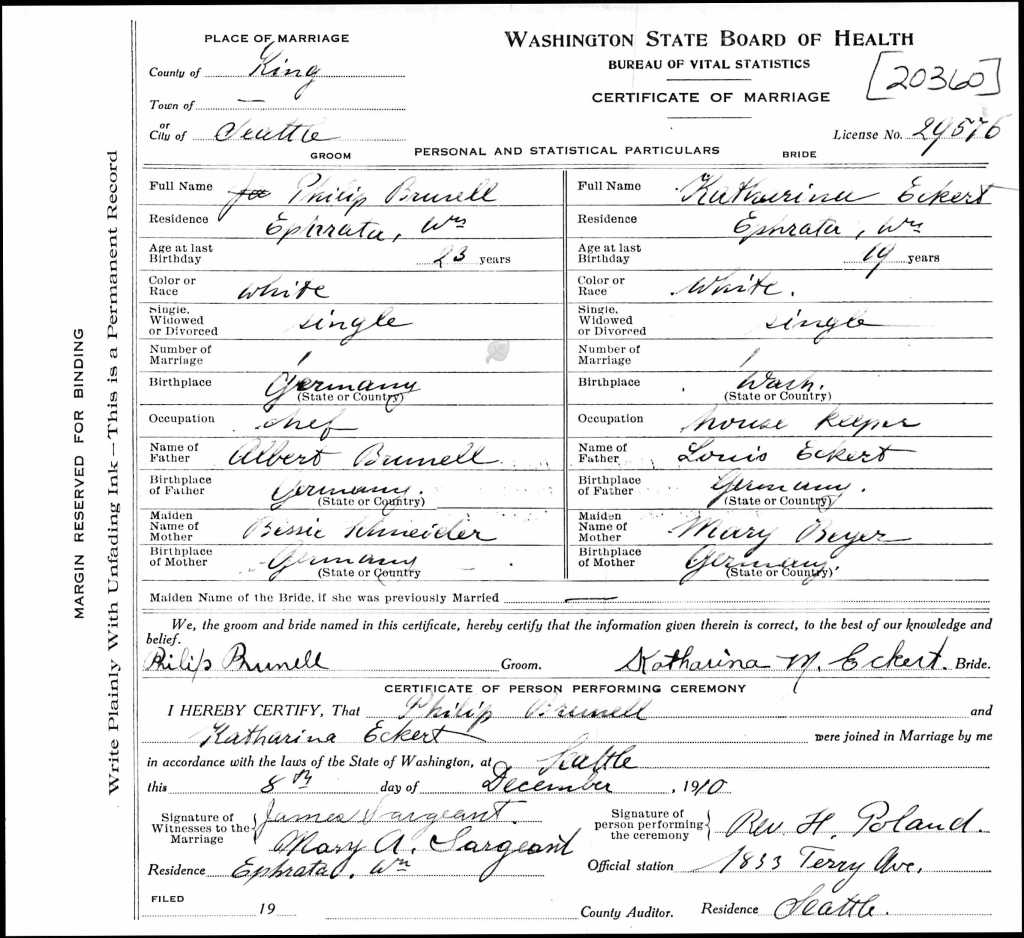 PLACE OF MARRIAGE
WASHINGTON STATE BOARD OF HEALTH
BUREAU OF VITAL STATISTICS
CERTIFICATE OF MARRIAGE
[20360]
County of King
Town of —
or
City of Seattle
License No. 29576
GROOM PERSONAL AND STATISTICAL PARTICULARS BRIDE
Full Name Philip Brunell Full Name Katharina Eckert
Residence Ephrata, Wn Residence Ephrata, Wn
Age at last Birthday 23 years Age at last Birthday 19 years
Color or Race white Color or Race White.
Single, Widowed or Divorced single Single, Widowed or Divorced single
Number of Marriage 1 Number of Marriage 1
Birthplace Germany (State or Country) Birthplace Wash. (State or Country)
Occupation chef Occupation house keeper
Name of Father Albert Brunell Name of Father Louis Eckert
Birthplace of Father Germany. (State or Country) Birthplace of Father Germany. (State or Country)
Maiden Name of Mother Bessie Schneider Maiden Name of Mother Mary Beyer
Birthplace of Mother Germany (State or Country Birthplace of Mother Germany. (State or Country)
Maiden Name of the Bride, if she was previously Married —
We, the groom and bride named in this certificate, hereby certify that the information given therein is correct, to the best of our knowledge and
belief.
Philip Brunell Groom. Katharina M. Eckert. Bride.
CERTIFICATE OF PERSON PERFORMING CEREMONY
I HEREBY CERTIFY, That Philip Brunell and
Katharina Eckert were joined in Marriage by me
in accordance with the laws of the State of Washington, at Seattle
this 8th day of December, 1910
Signature of Witnesses to the Marriage { James Sargeant. Signature of person performing the ceremony { Rev H. Poland.
Mary A. Sargeant
Residence Ephrata, Wn Official station 1833 Terry Ave.
FILED
19 County Auditor. Residence Seattle.
MARGIN RESERVED FOR BINDING
Write Plainly With Unfading Ink—This is a Permanent Record